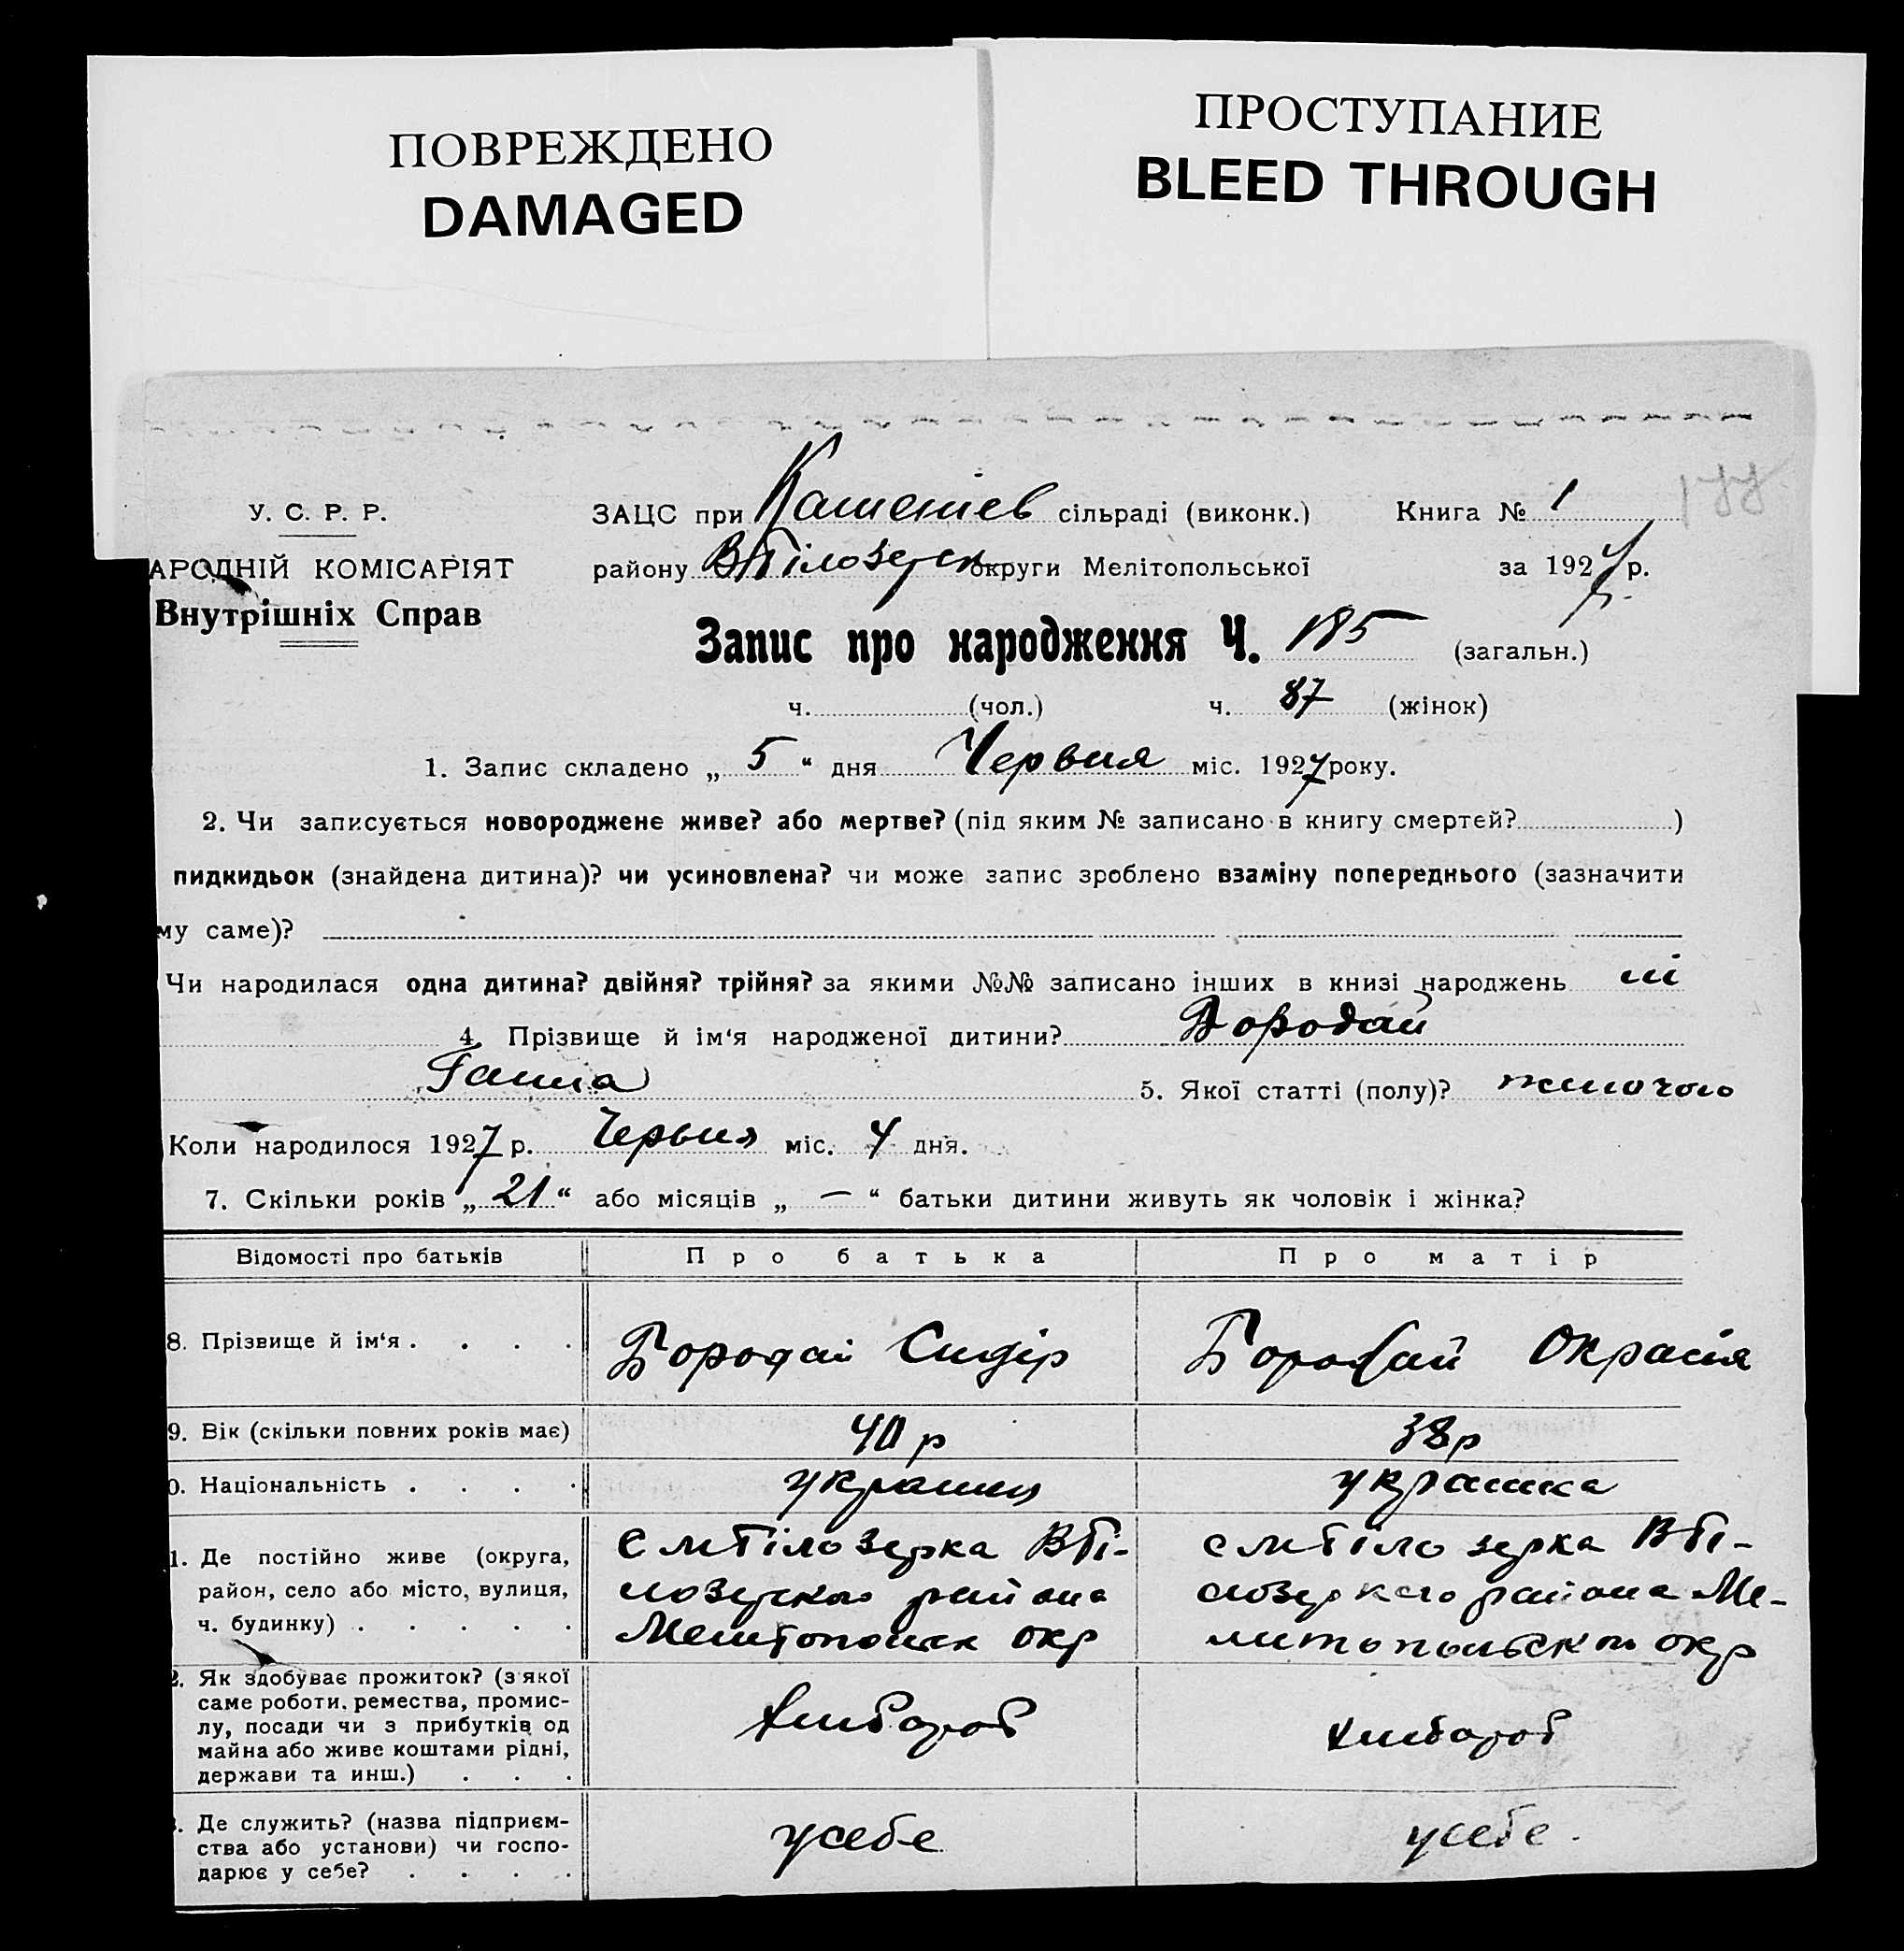 ПОВРЕЖДЕНО
DAMAGED
ПРОСТУПАНИЕ
BLEED THROUGH
У. С. Р. Р.
АРОДНІЙ КОМІСАРІЯТ
Внутрішніх Справ
ЗАЦС при сільраді (виконк.) Книга № 1 177
району В Білозерск округи Мелітопольської за 1927 р.
Запис про народження Ч. 185 (загальн.)
ч. (чол.) ч. 87 (жінок)
1. Запис складено „ 5 “ дня Червня міс. 1927 року.
2. Чи записується новороджене живе? або мертве? (під яким № записано в книгу смертей? )
пидкидьок (знайдена дитина)? чи усиновлена? чи може запис зроблено взаміну попереднього (зазначити
му саме)?
Чи народилася одна дитина? двійня? трійня? за якими №№ записано інших в книзі народжень ні
4. Прізвище й ім‘я народженої дитини? Бородай
Ганна 5. Якої статті (полу)? жиночого
Коли народилося 1927 р. Червня міс. 4 дня.
7. Скільки років „ 21 “ або місяців „ — “ батьки дитини живуть як чоловік і жінка?
Відомості про батьків Про батька Про матір
8. Прізвище й ім‘я . . . . Бородай Сидір Бородай Окрасія
9. Вік (скільки повних років має) 40 р 38 р
0. Національність . . . . українец українка
1. Де постійно живе (округа,
район, село або місто, вулиця,
ч. будинку) . . . . .
с М Білозерка В Бі-
лозерского района
Мелитопольск окр
с М Білозерка В Бі-
лозерского района Ме-
литопольской окр
2. Як здобуває прожиток? (з якої
саме роботи, ремества, промис-
лу, посади чи з прибутків од
майна або живе коштами рідні,
держави та инш.) . . .
Хлибороб
Хлибороб
. Де служить? (назва підприєм-
ства або установи) чи госпо-
дарює у себе? . . . .
у себе
у себе.